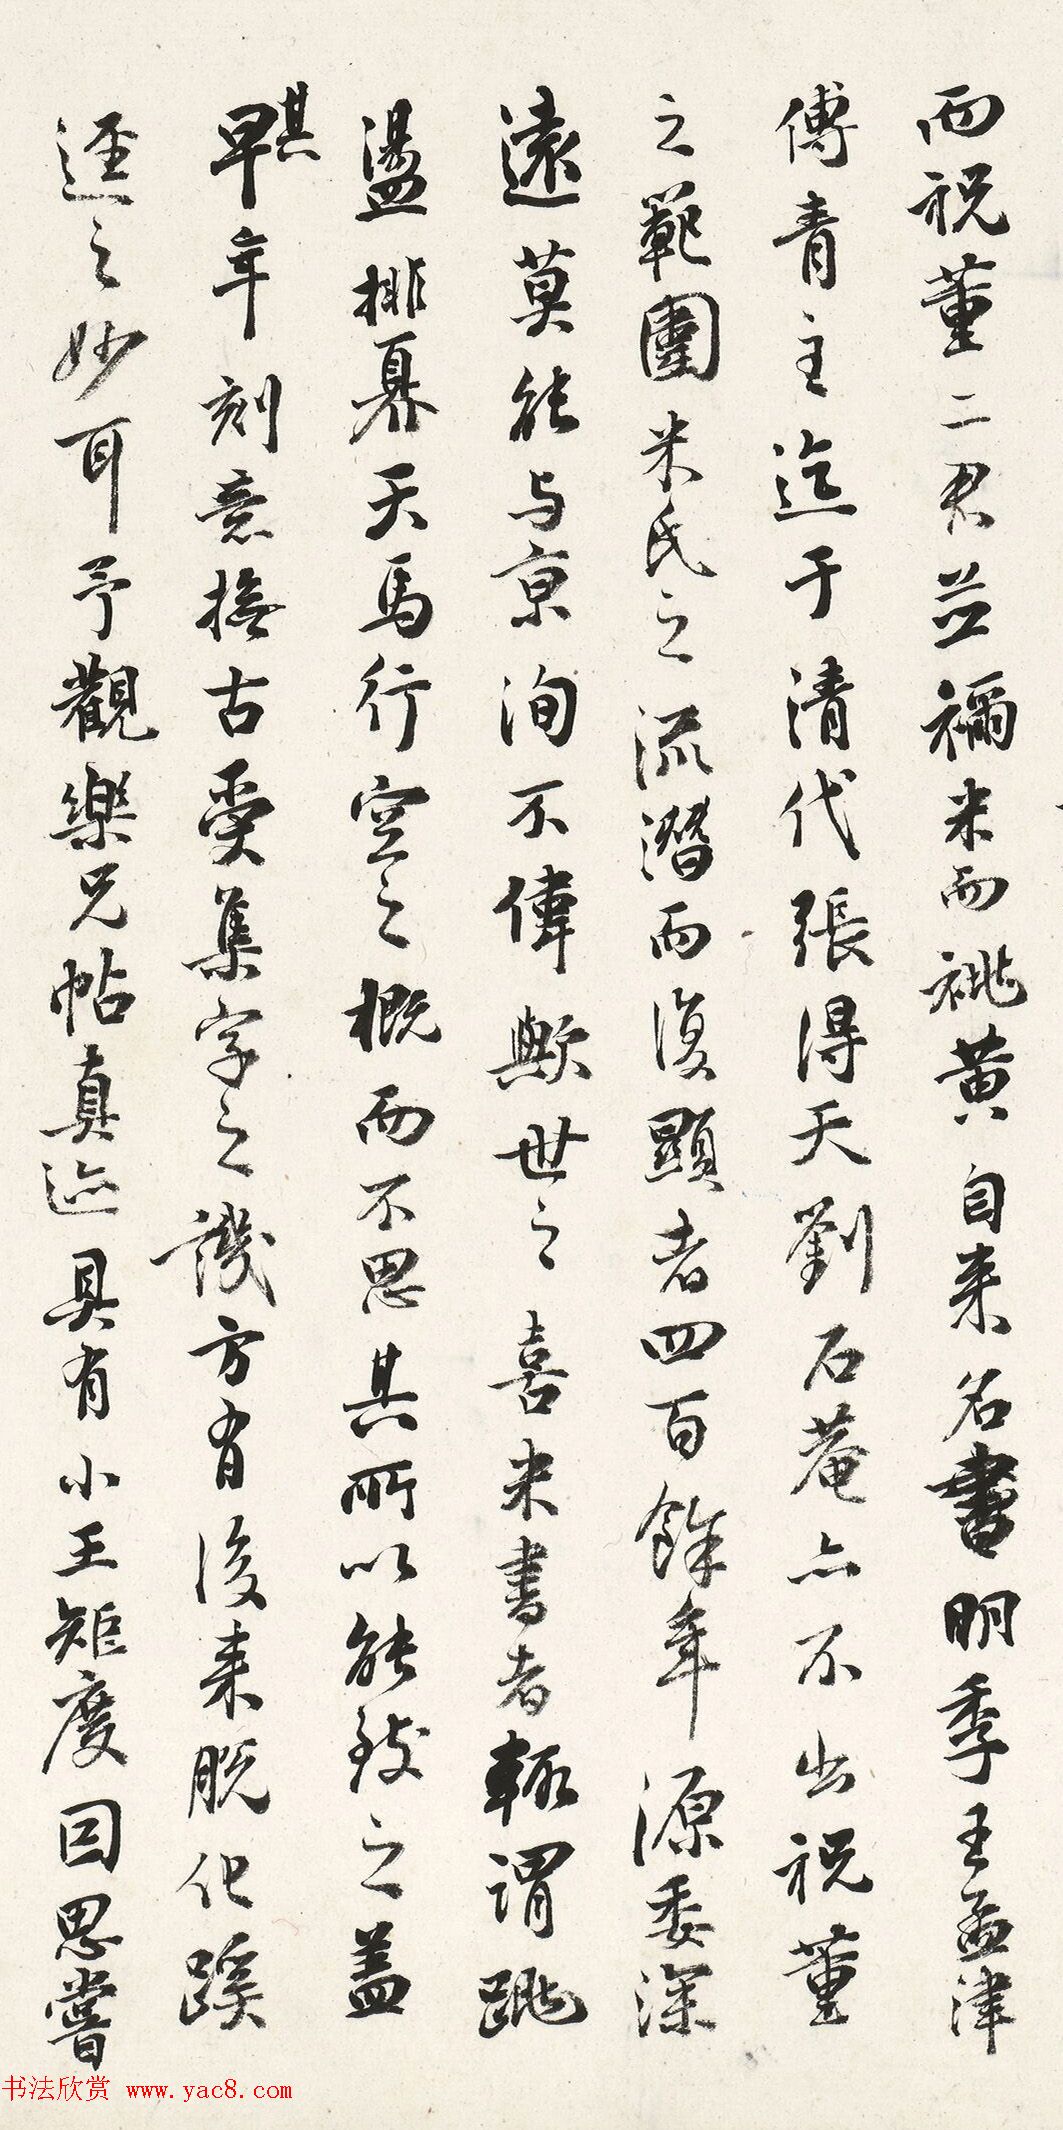 而祝董二君並禰米而祧黄自来名書明季王孟津
傅青主迄于清代張得天劉石菴亦不出祝董
之範圍米氏之流潛而復顯者四百餘年源委深
遠莫能与京洵不偉歟世之喜米書者輒謂跳
盪排奡天馬行空之概而不思其所以能致之蓋
其早年刻意撫古受集字之譏方有後来脱化蹊
逕之妙耳予觀樂兄帖真迹具有小王矩度因思嘗
书法欣赏 www.yac8.com